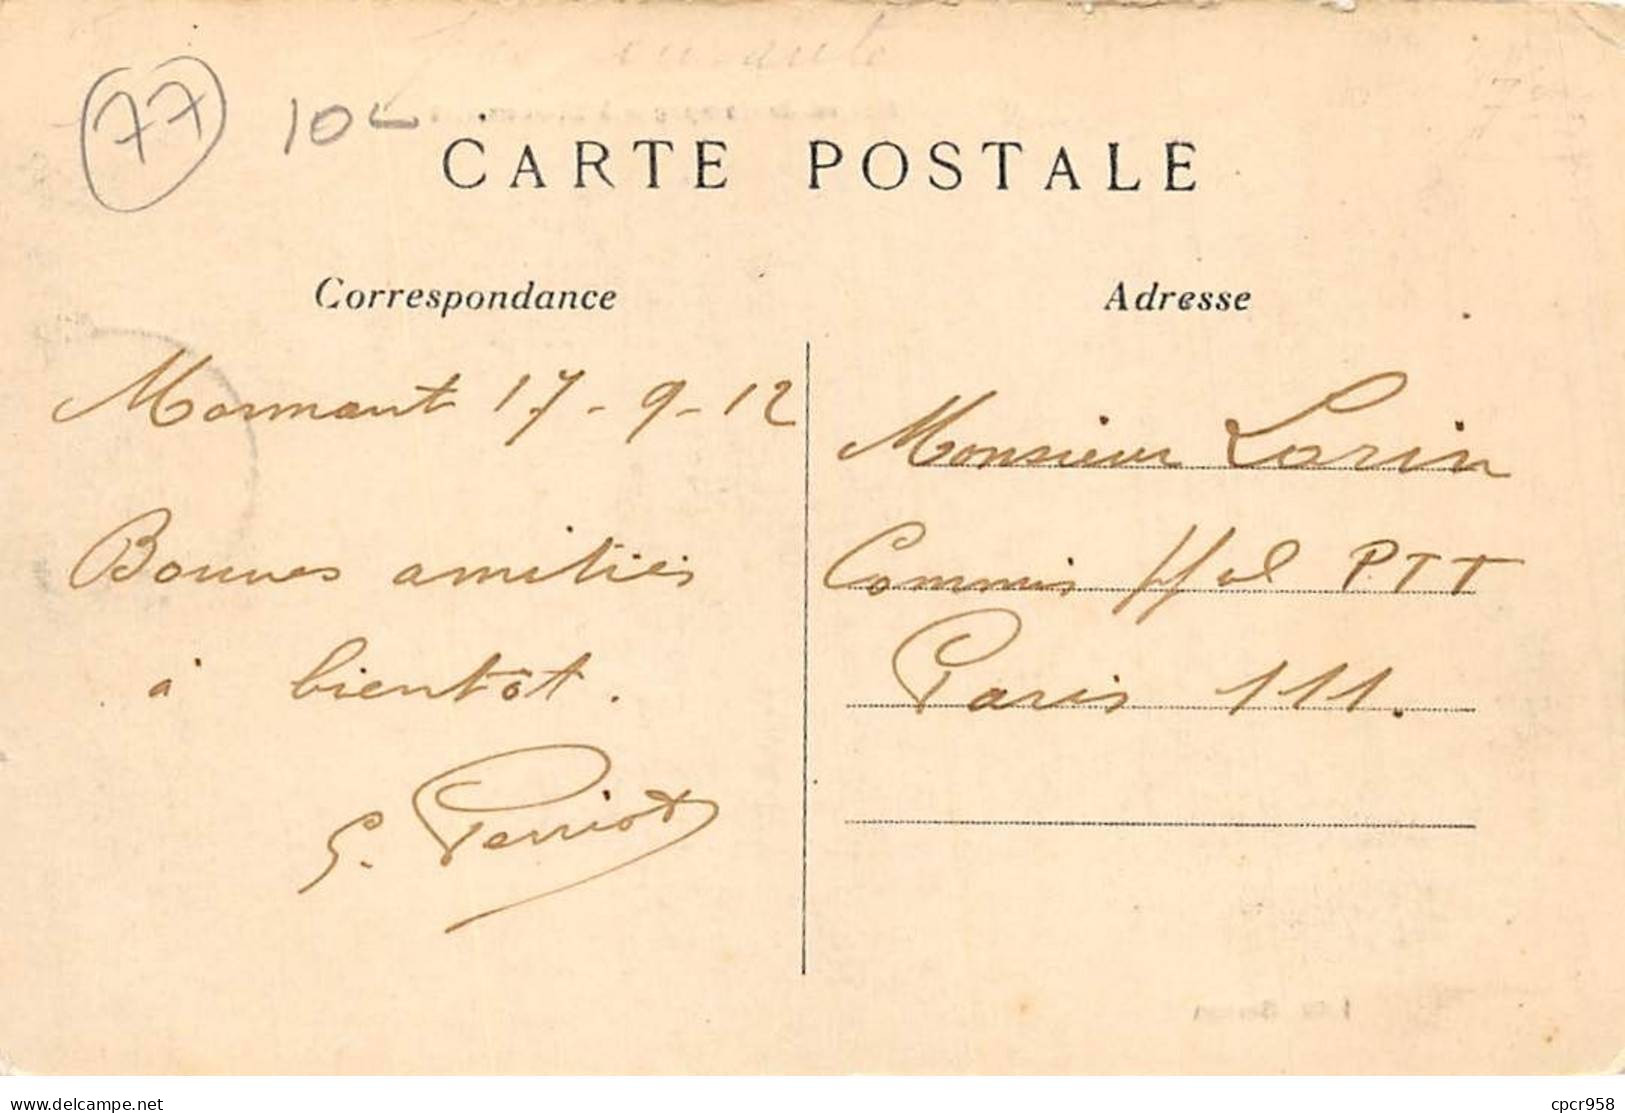 77 10
CARTE POSTALE
Correspondance
Mormant 17-9-12
Bonnes amitiés
à bientôt.
G. Perriot
Adresse
Monsieur Lorin
Commis ppal PTT
Paris 111.
delcampe.net
cpcr958